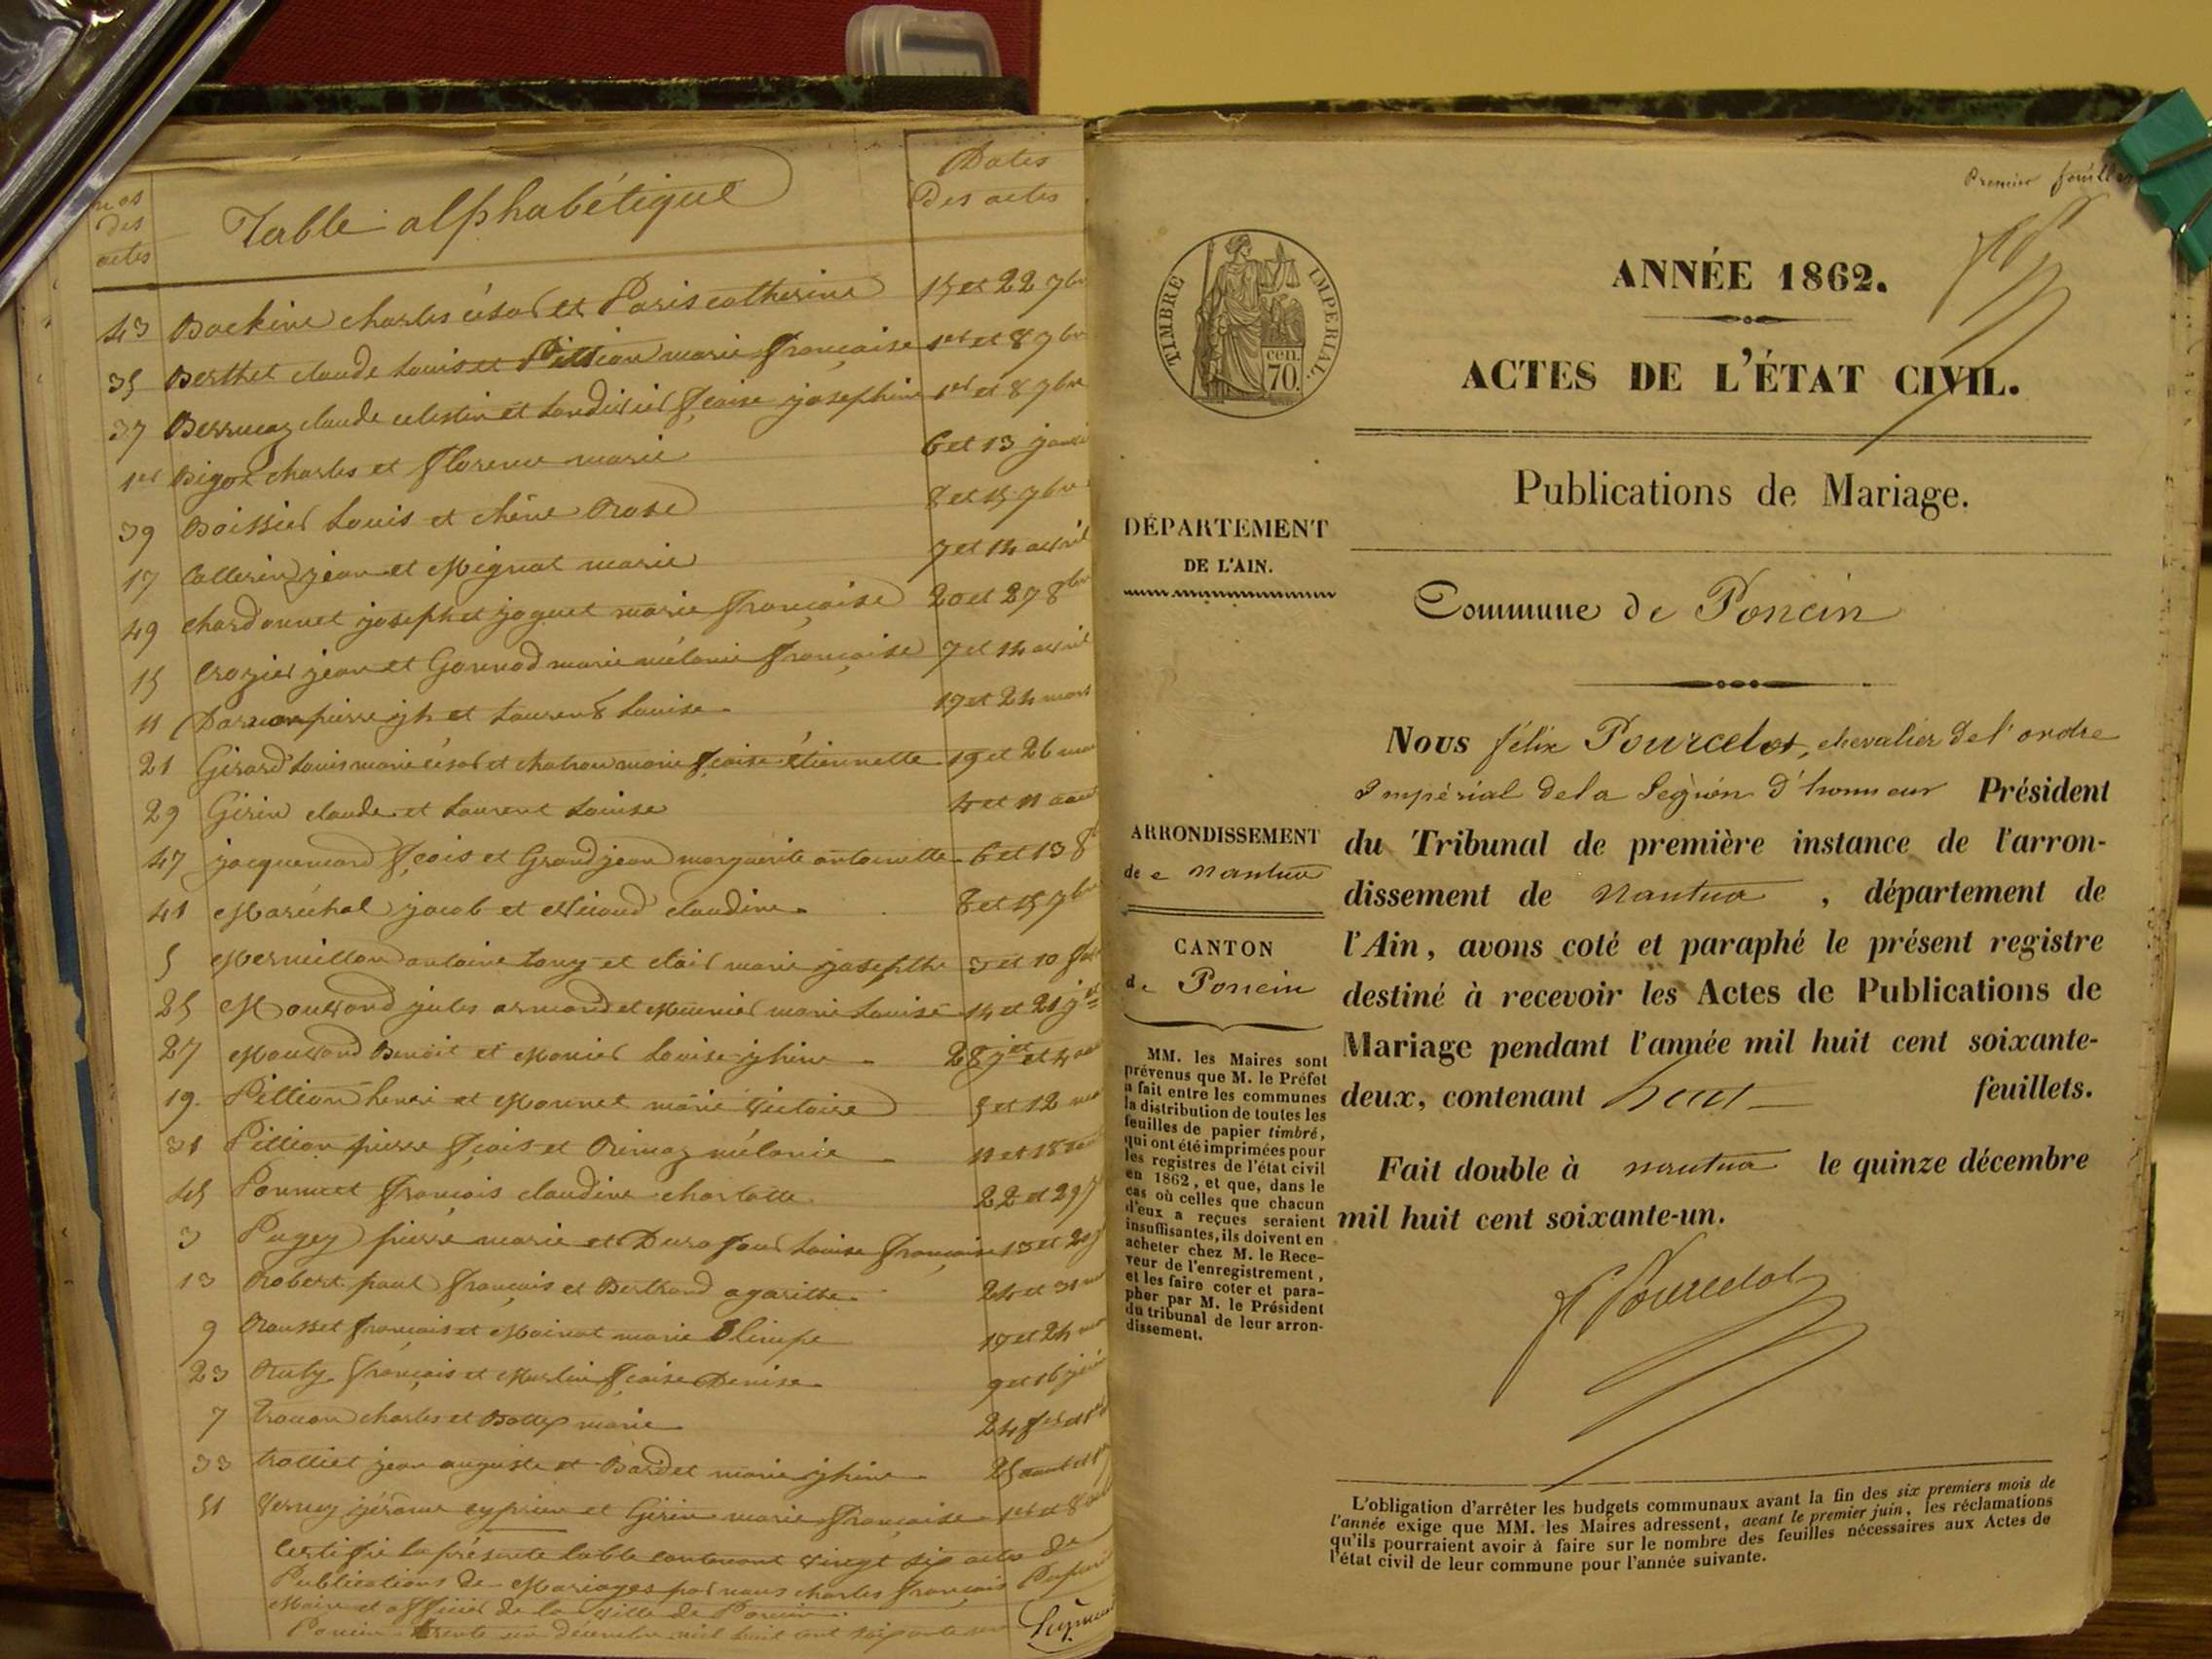 nos
des
actes
Table alphabétique
Dates
Des actes
43 Backine charles césar et Paris catherine 15 et 22 7bre
35 Berthet claude Louis et Pittion marie française 1er et 8 7bre
37 claude celestin et fçaise josephine 1er et 8 7bre
1er Bigot charles et Florence marie 6 et 13
39 Boissier Louis et chêne Rose 8 et 15 7bre
17 Collerin jean et Mignat marie 7 et 14 avril
49 chardonnet joseph et joguet marie françoise 20 et 27 8bre
15 Crozier jean et Gonnod marie mélanie françoise 7 et 14 avril
11 pierre jh et Laurent Louise 17 et 24 mars
21 Girard Louis marie césar et marie fçoise étiennette 19 et 26
29 Girin claude et Laurent Louise 4 et 11
47 jacquemard fçois et Grandjean marguerite antoinette 6 et 13
41 Maréchal jacob et claudine 8 et 15 7bre
5 Mermillon antoine tony et clair marie josephte 3 et 10
25 jules armand et Meunier marie Louise 14 et 21
27 Benoit et Monier Louise jphine 28 et 4
19 Pittion henri et Monnet marie Victoire 5 et 12
31 Pittion pierre fçois et mélanie 11 et 18
45 Ponmet françois claudine charlotte 22 et 29
3 Pugey pierre marie et Durafour Louise françoise 13 et 20
13 Robert paul françois et Bertrand agarithe 24 et 31
9 Rousset françois et Mainat marie Olimpe 17 et 24
23 Ruty françois et Martin fçoise Denise 9 et 16
7 charles et marie 24
33 Trolliet jean auguste et Bardet marie jphine 25
51 Verney jérôme cyprien et Girin marie françoise 1er et 8
Certifié la présente table contenant vingt six actes de
Publications de Mariages par nous charles françois
Maire et officier de la ville de Poncin.
Poncin trente un décembre mil huit cent soixante un
Premier feuillet
TIMBRE IMPERIAL.
cen.
70.
ANNÉE 1862.
ACTES DE L'ÉTAT CIVIL.
Publications de Mariage.
DÉPARTEMENT
DE L'AIN.
Commune de Poncin
Nous félix Pourcelot, chevalier de l'ordre
Impérial de la Légion d'honneur Président
du Tribunal de première instance de l'arron-
dissement de Nantua , département de
l'Ain, avons coté et paraphé le présent registre
destiné à recevoir les Actes de Publications de
Mariage pendant l'année mil huit cent soixante-
deux, contenant huit feuillets.
Fait double à nantua le quinze décembre
mil huit cent soixante-un.
F Pourcelot
ARRONDISSEMENT
de e Nantua
CANTON
de Poncin
MM. les Maires sont
prévenus que M. le Préfet
a fait entre les communes
la distribution de toutes les
feuilles de papier timbré,
qui ont été imprimées pour
les registres de l'état civil
en 1862, et que, dans le
cas où celles que chacun
d'eux a reçues seraient
insuffisantes, ils doivent en
acheter chez M. le Rece-
veur de l'enregistrement,
et les faire coter et para-
pher par M. le Président
du tribunal de leur arron-
dissement.
L'obligation d'arrêter les budgets communaux avant la fin des six premiers mois de
l'année exige que MM. les Maires adressent, avant le premier juin, les réclamations
qu'ils pourraient avoir à faire sur le nombre des feuilles nécessaires aux Actes de
l'état civil de leur commune pour l'année suivante.